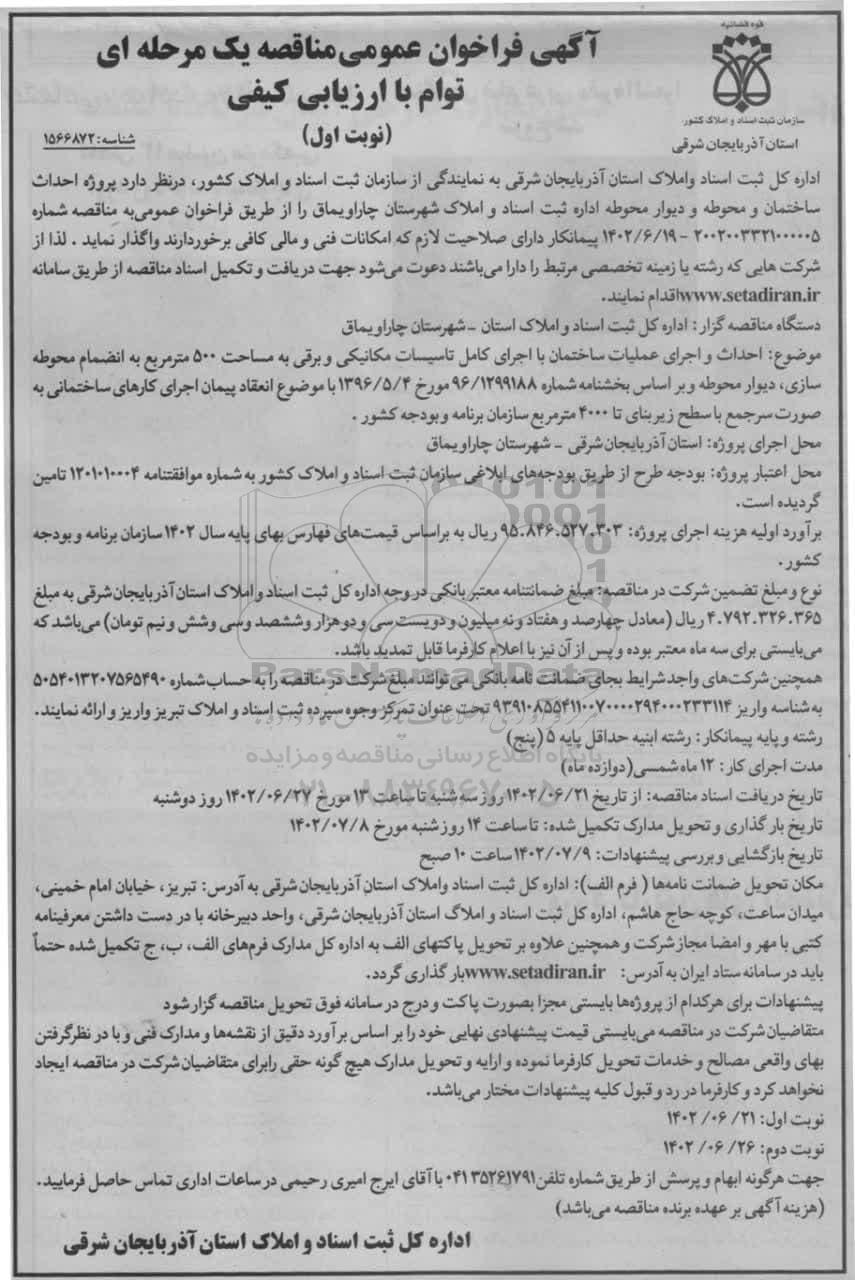 قوه قضائیه
سازمان ثبت اسناد و املاک کشور
استان آذربایجان شرقی
آگهی فراخوان عمومی مناقصه یک مرحله ای
توام با ارزیابی کیفی
(نوبت اول)
شناسه: ۱۵۶۶۸۷۲
اداره کل ثبت اسناد واملاک استان آذربایجان شرقی به نمایندگی از سازمان ثبت اسناد و املاک کشور، درنظر دارد پروژه احداث
ساختمان و محوطه و دیوار محوطه اداره ثبت اسناد و املاک شهرستان چاراویماق را از طریق فراخوان عمومی به مناقصه شماره
۲۰۰۲۰۰۳۳۲۱۰۰۰۰۰۵ - ۱۴۰۲/۶/۱۹ پیمانکار دارای صلاحیت لازم که امکانات فنی و مالی کافی برخوردارند واگذار نماید . لذا از
شرکت هایی که رشته یا زمینه تخصصی مرتبط را دارا می‌باشند دعوت می‌شود جهت دریافت و تکمیل اسناد مناقصه از طریق سامانه
www.setadiran.ir اقدام نمایند.
دستگاه مناقصه گزار: اداره کل ثبت اسناد و املاک استان - شهرستان چاراویماق
موضوع: احداث و اجرای عملیات ساختمان با اجرای کامل تاسیسات مکانیکی و برقی به مساحت ۵۰۰ مترمربع به انضمام محوطه
سازی، دیوار محوطه و بر اساس بخشنامه شماره ۹۶/۱۲۹۹۱۸۸ مورخ ۱۳۹۶/۵/۴ با موضوع انعقاد پیمان اجرای کارهای ساختمانی به
صورت سرجمع با سطح زیربنای تا ۴۰۰۰ مترمربع سازمان برنامه و بودجه کشور .
محل اجرای پروژه: استان آذربایجان شرقی - شهرستان چاراویماق
محل اعتبار پروژه: بودجه طرح از طریق بودجه‌های ابلاغی سازمان ثبت اسناد و املاک کشور به شماره موافقتنامه ۱۲۰۱۰۱۰۰۰۴ تامین
گردیده است.
برآورد اولیه هزینه اجرای پروژه: ۹۵.۸۴۶.۵۲۷.۳۰۳ ریال به براساس قیمت‌های فهارس بهای پایه سال ۱۴۰۲ سازمان برنامه و بودجه
کشور.
نوع و مبلغ تضمین شرکت در مناقصه: مبلغ ضمانتنامه معتبر بانکی در وجه اداره کل ثبت اسناد و املاک استان آذربایجان شرقی به مبلغ
۴.۷۹۲.۳۲۶.۳۶۵ ریال (معادل چهارصد و هفتاد و نه میلیون و دویست سی و دو هزار و ششصد و سی و شش و نیم تومان) می‌باشد که
می‌بایستی برای سه ماه معتبر بوده و پس از آن نیز با اعلام کارفرما قابل تمدید باشد.
همچنین شرکت‌های واجد شرایط بجای ضمانت نامه بانکی می‌توانند مبلغ شرکت در مناقصه را به حساب شماره ۵۰۵۴۰۱۳۲۰۷۵۶۵۴۹۰
به شناسه واریز ۹۳۹۱۰۸۵۵۴۱۱۰۰۷۰۰۰۰۲۹۴۰۰۰۲۳۳۱۱۴ تحت عنوان تمرکز وجوه سپرده ثبت اسناد و املاک تبریز واریز و ارائه نمایند.
رشته و پایه پیمانکار: رشته ابنیه حداقل پایه ۵ (پنج)
مدت اجرای کار: ۱۲ ماه شمسی(دوازده ماه)
تاریخ دریافت اسناد مناقصه: از تاریخ ۱۴۰۲/۰۶/۲۱ روز سه شنبه تا ساعت ۱۳ مورخ ۱۴۰۲/۰۶/۲۷ روز دوشنبه
تاریخ بارگذاری و تحویل مدارک تکمیل شده: تا ساعت ۱۴ روز شنبه مورخ ۱۴۰۲/۰۷/۸
تاریخ بازگشایی و بررسی پیشنهادات: ۱۴۰۲/۰۷/۹ ساعت ۱۰ صبح
مکان تحویل ضمانت نامه‌ها ( فرم الف): اداره کل ثبت اسناد واملاک استان آذربایجان شرقی به آدرس: تبریز، خیابان امام خمینی،
میدان ساعت، کوچه حاج هاشم، اداره کل ثبت اسناد و املاک استان آذربایجان شرقی، واحد دبیرخانه با در دست داشتن معرفینامه
کتبی با مهر و امضا مجاز شرکت و همچنین علاوه بر تحویل پاکتهای الف به اداره کل مدارک فرم‌های الف، ب، ج تکمیل شده حتماً
باید در سامانه ستاد ایران به آدرس: www.setadiran.ir بارگذاری گردد.
پیشنهادات برای هرکدام از پروژه‌ها بایستی مجزا بصورت پاکت و درج در سامانه فوق تحویل مناقصه گزار شود
متقاضیان شرکت در مناقصه می‌بایستی قیمت پیشنهادی نهایی خود را بر اساس برآورد دقیق از نقشه‌ها و مدارک فنی و با در نظر گرفتن
بهای واقعی مصالح و خدمات تحویل کارفرما نموده و ارایه و تحویل مدارک هیچ گونه حقی رابرای متقاضیان شرکت در مناقصه ایجاد
نخواهد کرد و کارفرما در رد و قبول کلیه پیشنهادات مختار می‌باشد.
نوبت اول: ۲۱/ ۰۶/ ۱۴۰۲
نوبت دوم: ۲۶/ ۰۶/ ۱۴۰۲
جهت هرگونه ابهام و پرسش از طریق شماره تلفن ۰۴۱۳۵۲۶۱۷۹۱ با آقای ایرج امیری رحیمی در ساعات اداری تماس حاصل فرمایید.
(هزینه آگهی بر عهده برنده مناقصه می‌باشد)
اداره کل ثبت اسناد و املاک استان آذربایجان شرقی
ParsNamadData
پایگاه اطلاع رسانی مناقصه و مزایده
۰۲۱-۸۸۳۴۹۶۷۰-۵